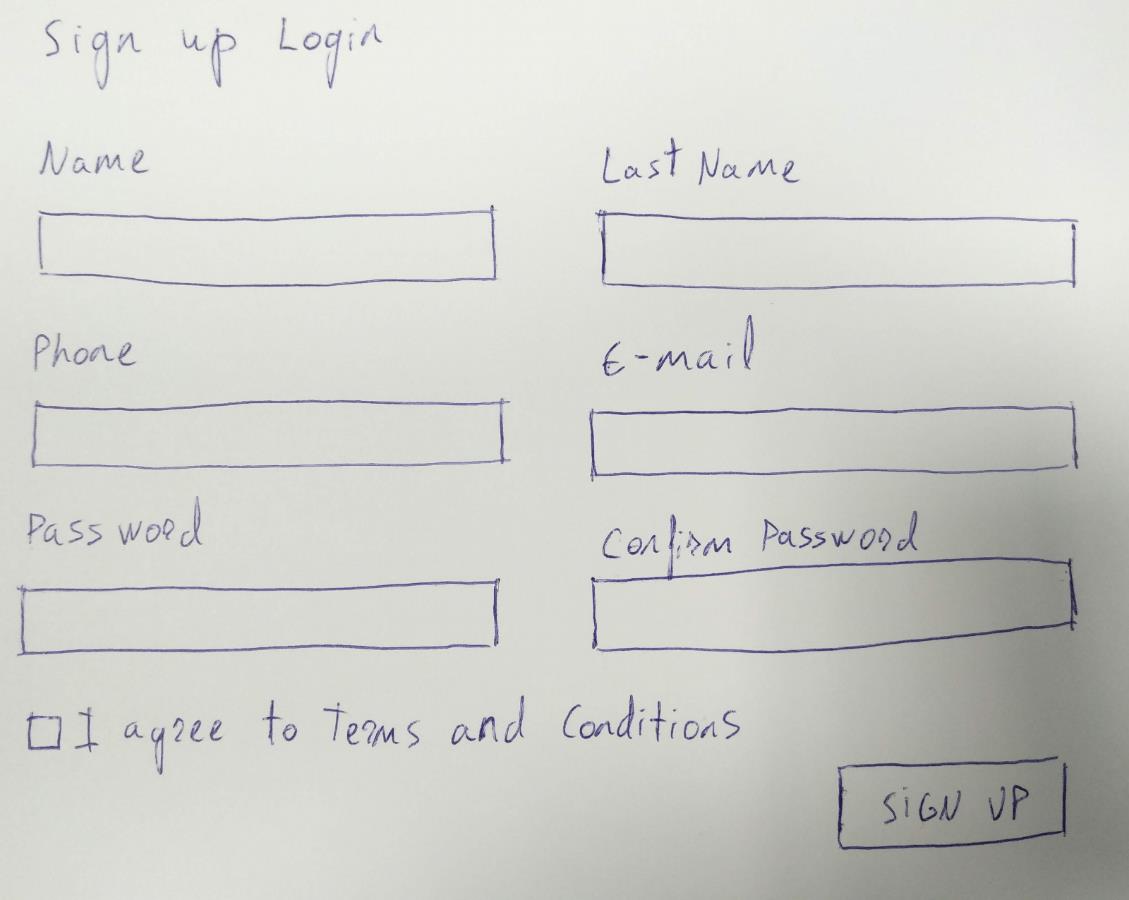 Sign up Login
Name
Last Name
Phone
E-mail
Password
Confirm Password
I agree to Terms and Conditions
SiGN UP